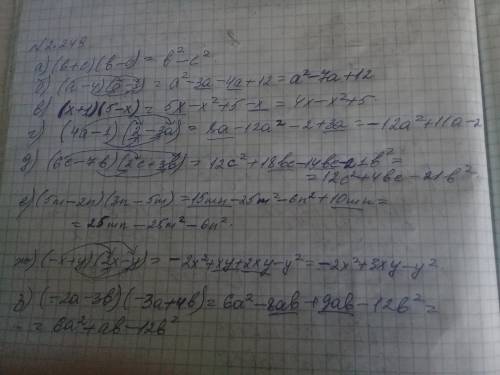 №2.249
а) (b+c)(b-c) = b²-c²
б) (a-4)(a-3) = a²-3a-4a+12 = a²-7a+12
в) (x+1)(5-x) = 5x-x²+5-x = 4x-x²+5
г) (4a-1)(2-3a) = 8a-12a²-2+3a = -12a²+11a-2
д) (6c-7b)(2c+3b) = 12c²+18bc-14bc-21b² =
= 12c²+4bc-21b²
е) (5m-2n)(3n-5m) = 15mn-25m²-6n²+10mn =
= 25mn-25m²-6n²
ж) (-x+y)(2x-y) = -2x²+xy+2xy-y² = -2x²+3xy-y²
з) (-2a-3b)(-3a+4b) = 6a²-8ab+9ab-12b² =
= 6a²+ab-12b²